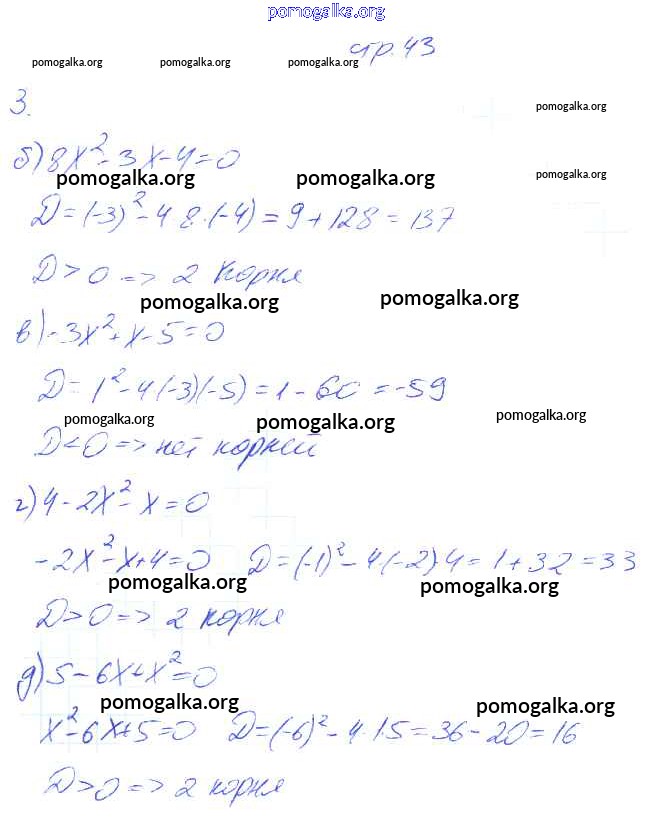 pomogalka.org
стр. 43
pomogalka.org pomogalka.org pomogalka.org
3.
pomogalka.org
б) 8x² - 3x - 4 = 0
pomogalka.org
pomogalka.org pomogalka.org
D = (-3)² - 4·8·(-4) = 9 + 128 = 137
D > 0 => 2 корня
pomogalka.org pomogalka.org
в) -3x² + x - 5 = 0
D = 1² - 4(-3)(-5) = 1 - 60 = -59
pomogalka.org pomogalka.org pomogalka.org
D < 0 => нет корней
г) 4 - 2x² - x = 0
-2x² - x + 4 = 0 D = (-1)² - 4(-2)·4 = 1 + 32 = 33
pomogalka.org pomogalka.org
D > 0 => 2 корня
д) 5 - 6x + x² = 0
pomogalka.org pomogalka.org
x² - 6x + 5 = 0 D = (-6)² - 4·1·5 = 36 - 20 = 16
D > 0 => 2 корня